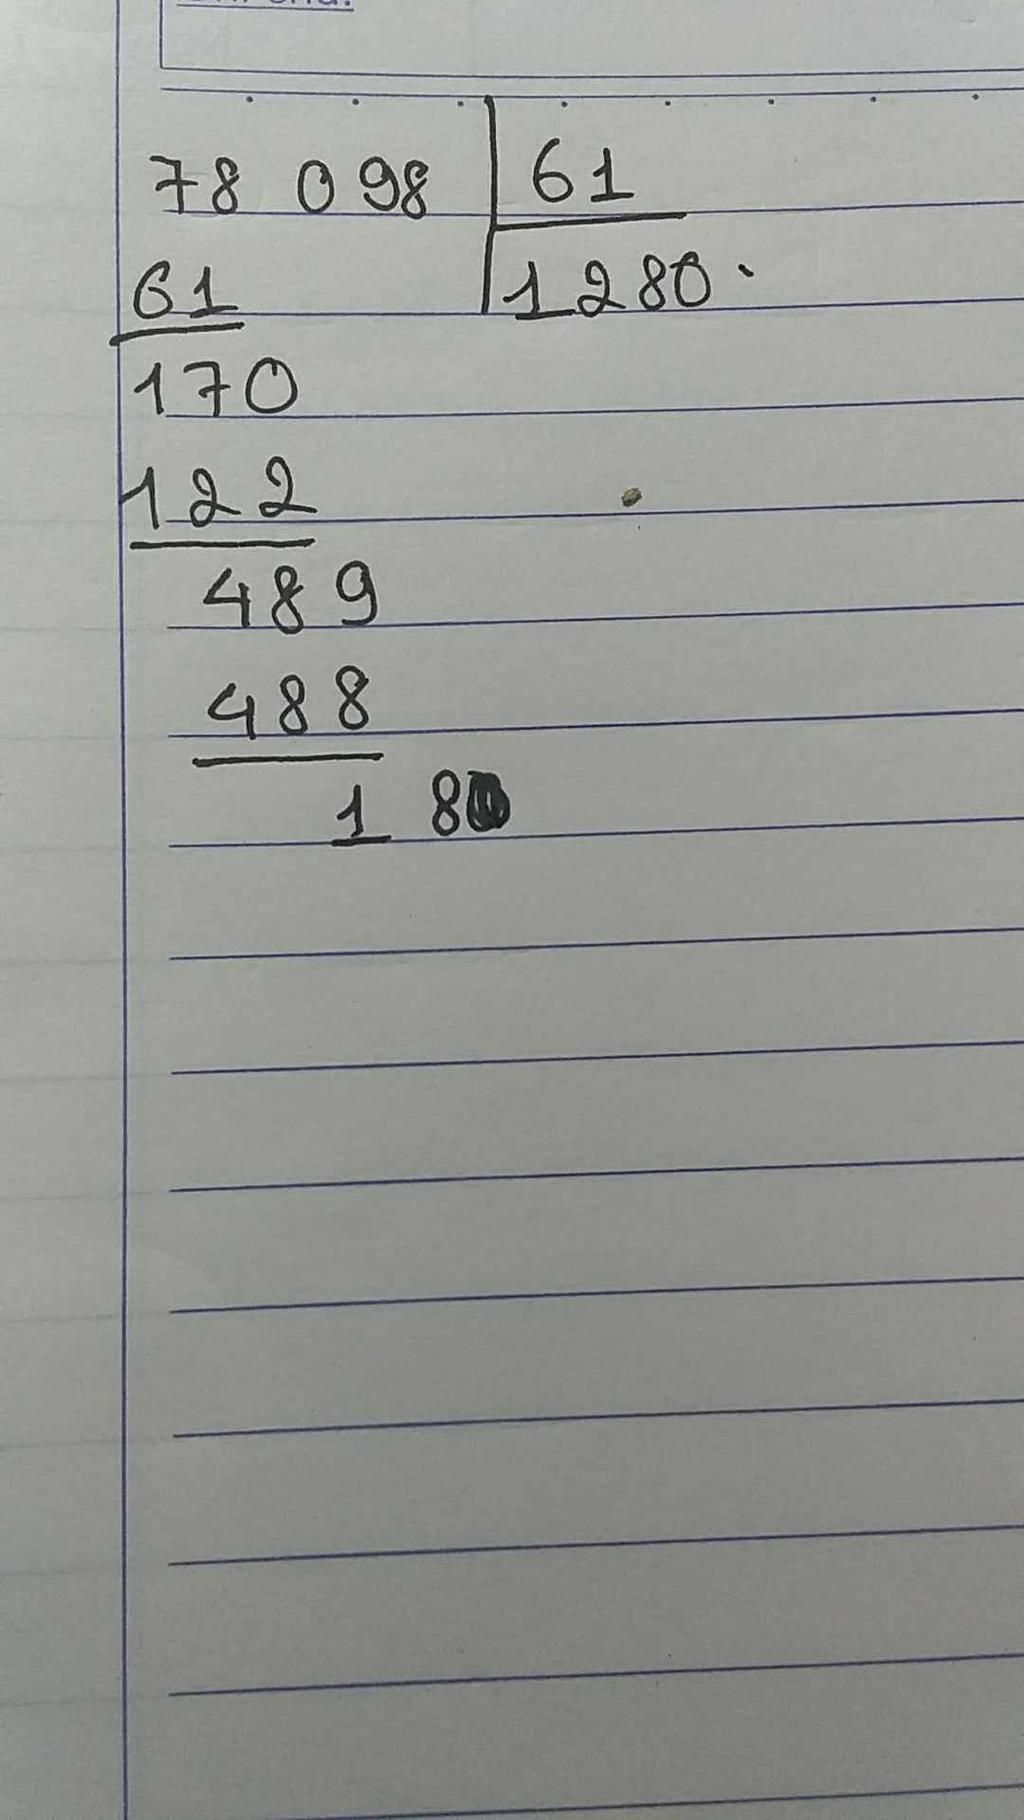 78 098 61
61 1280.
170
122
489
488
1 8